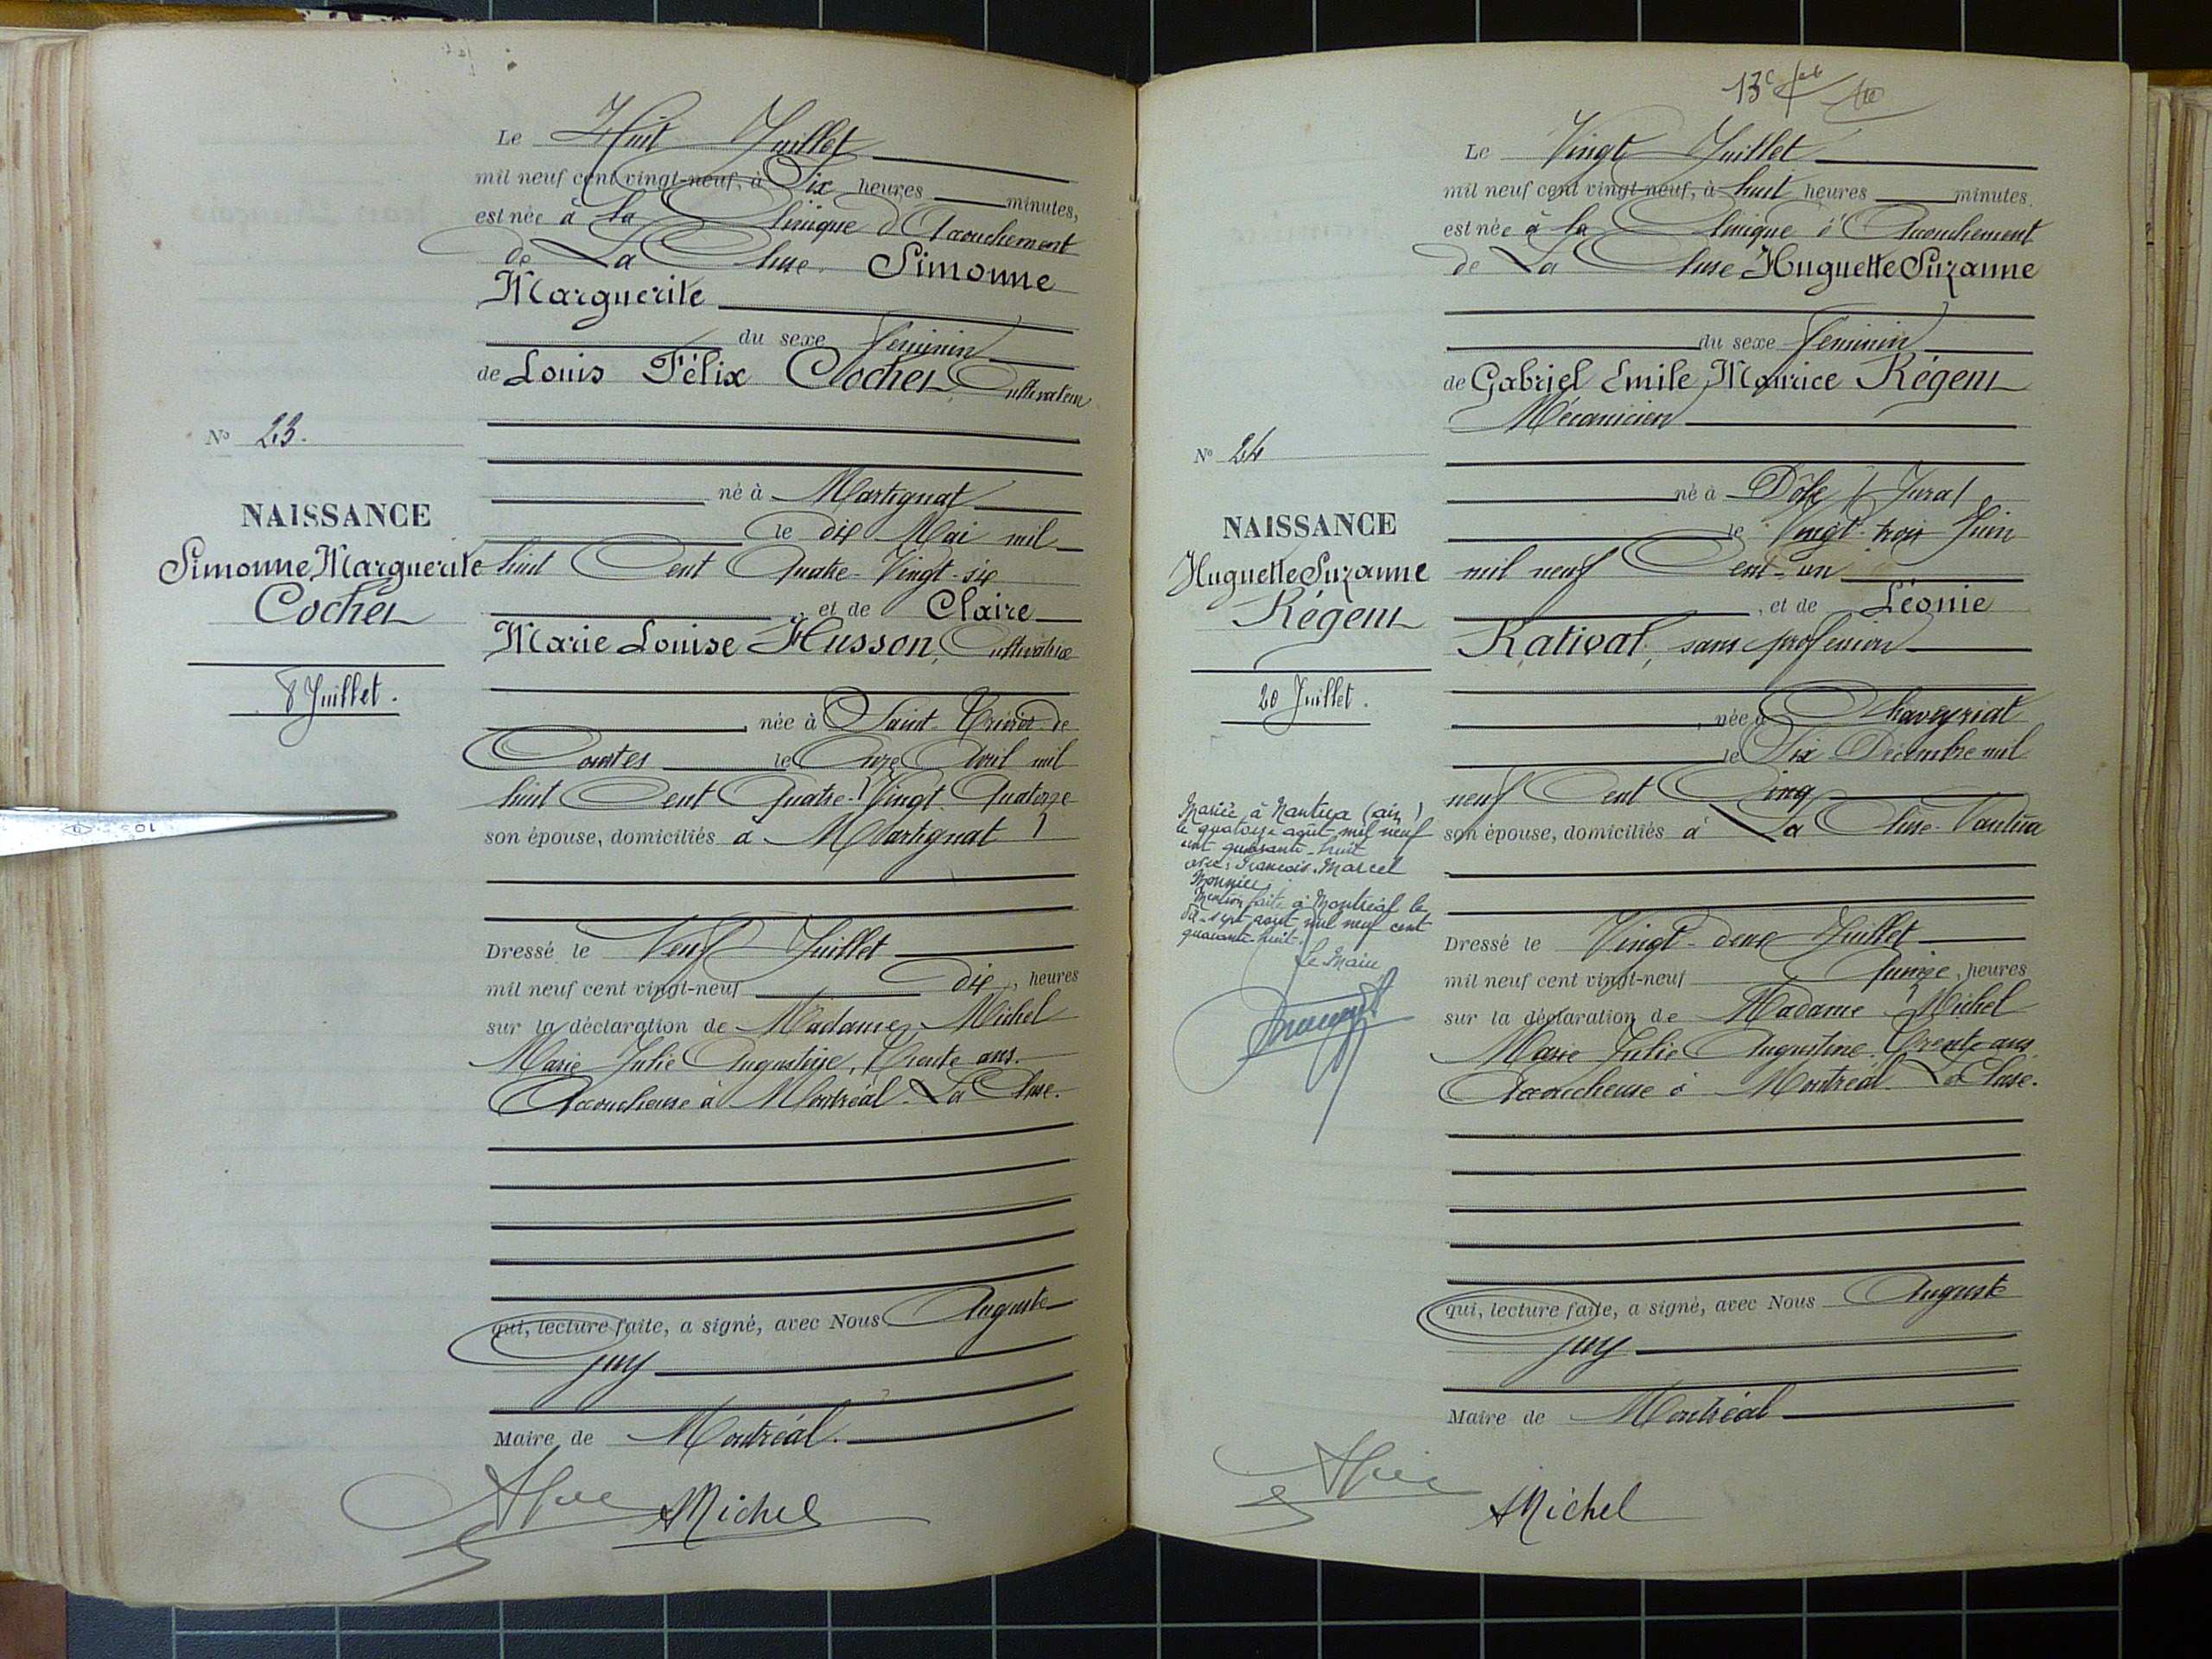 Le Huit Juillet
mil neuf cent vingt-neuf, à Six heures minutes,
est née à la Clinique d'Accouchement
de La Cluse. Simonne
Marguerite
du sexe féminin
de Louis Félix Cochet, Cultivateur
né à Martignat
le dix Mai mil
huit Cent Quatre-Vingt-six
, et de Claire
Marie Louise Husson, Cultivatrice
, née à Saint-Trivier-de
Courtes le Onze Avril mil
huit Cent Quatre-Vingt-Quatorze
son épouse, domiciliés à Martignat
Dressé le Neuf Juillet
mil neuf cent vingt-neuf dix, heures
sur la déclaration de Madame Michel
Marie Julie Augustine, Trente ans.
Accoucheuse à Montréal-La Cluse.
qui, lecture faite, a signé, avec Nous Auguste
Juy
Maire de Montréal.
Michel
No 23.
NAISSANCE
Simonne Marguerite
Cochet
8 Juillet.
Le Vingt Juillet
mil neuf cent vingt-neuf, à huit heures minutes.
est née à la Clinique d'Accouchement
de La Cluse Huguette Suzanne
du sexe féminin
de Gabriel Emile Maurice Régent
Mécanicien
né à Dole (Jura)
le Vingt-trois Juin
mil neuf Cent-un
, et de Léonie
Rativat, sans profession
, née à Chaveyriat
le Six Décembre mil
neuf Cent Cinq
son épouse, domiciliés à La Cluse-Nantua
Dressé le Vingt-deux Juillet
mil neuf cent vingt-neuf Quinze, heures
sur la déclaration de Madame Michel
Marie Julie Augustine. Trente ans
Accoucheuse à Montréal-La Cluse.
qui, lecture faite, a signé, avec Nous Auguste
Juy
Maire de Montréal
Michel
No 24
NAISSANCE
Huguette Suzanne
Régent
20 Juillet.
Mariée à Nantua (ain)
le quatorze août mil neuf
cent quarante-huit
avec: François-Marcel
Monnier.
Mention faite à Montréal le
dix-sept août mil neuf cent
quarante-huit.
Le Maire